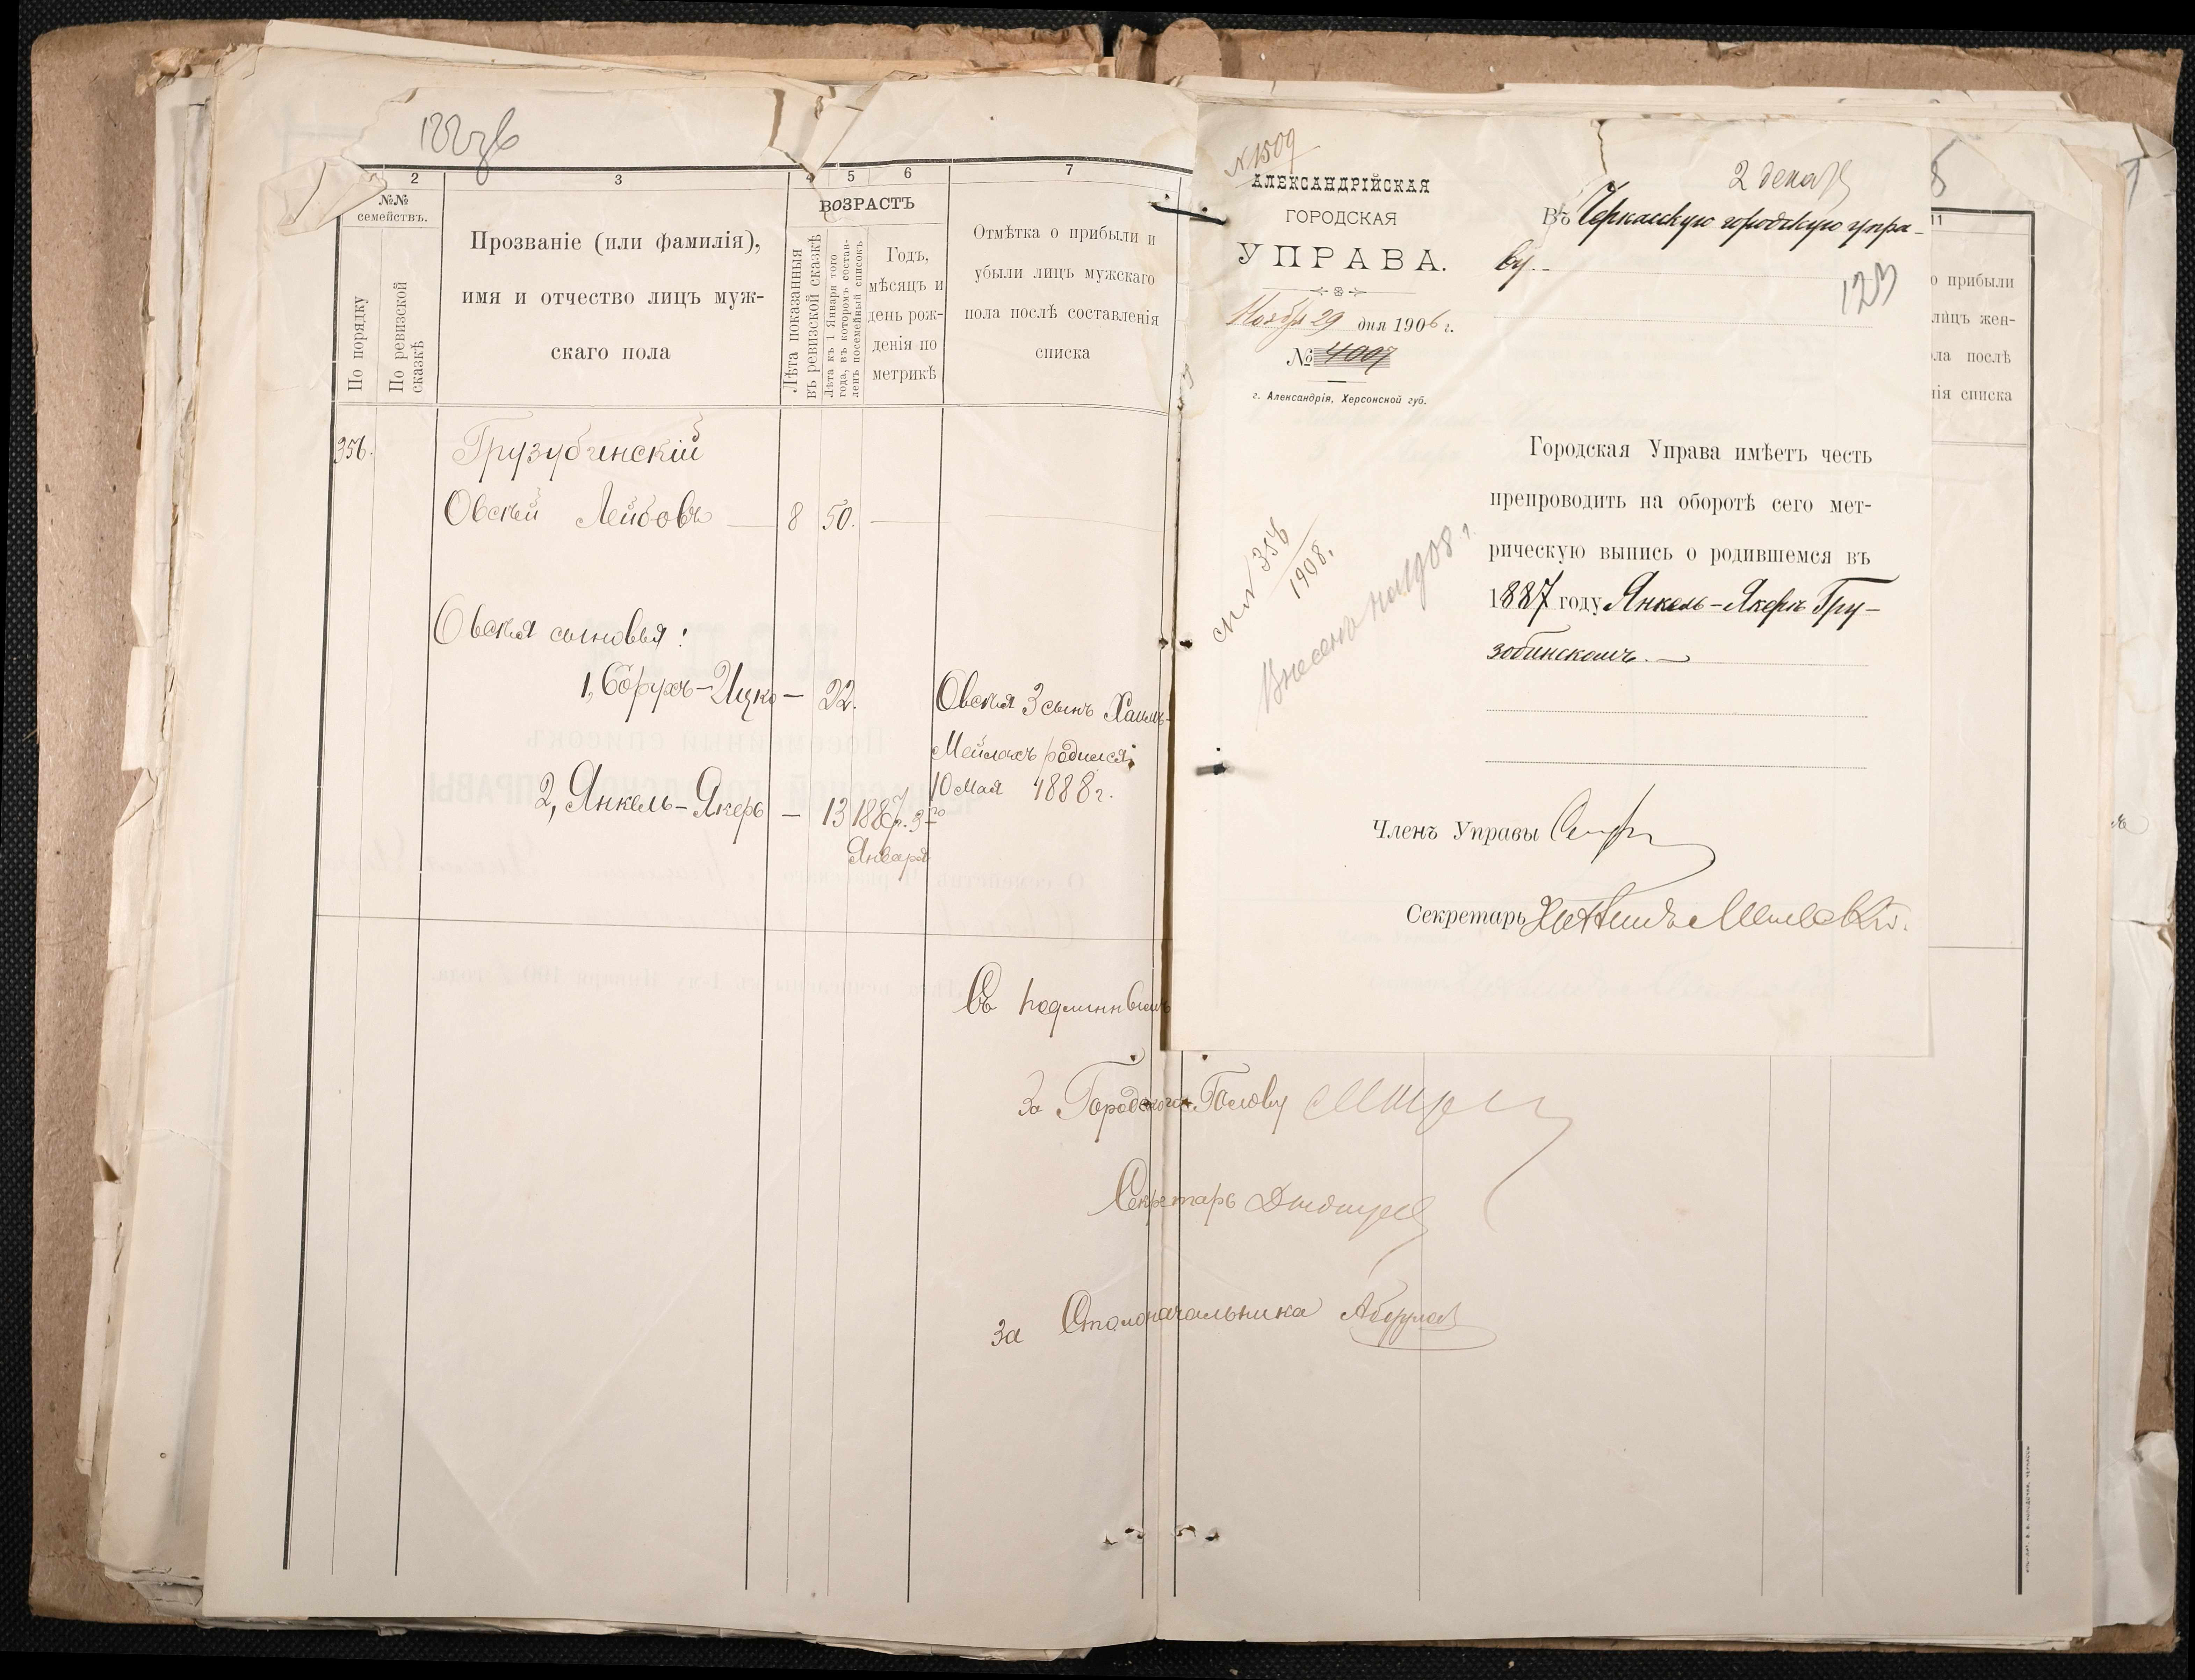 122
2
3
4
5
6
7
№№
семействъ.
ВОЗРАСТЪ
По порядку
По ревизской
сказкѣ
Прозваніе (или фамилія),
имя и отчество лицъ муж-
скаго пола
Лѣта показанныя
въ ревизской сказкѣ
Лѣта къ 1 Января того
года, въ которомъ состав-
ленъ посемейный списокъ
Годъ,
мѣсяцъ и
день рож-
денія по
метрикѣ
Отмѣтка о прибыли и
убыли лицъ мужскаго
пола послѣ составленія
списка
356.
Грузубинскій
Овсѣй Лейбовъ — 8 50. —
Овсѣя сыновья:
1, Борухъ-Ицко — 22.
Овсѣя 3 сынъ Хаимъ-
Мейлахъ родился
10 Мая 1888 г.
2, Янкель-Якеръ — 13 1887г. 3го
Января
Въ подлинномъ
За Городского Голову
Секретарь
За Столоначальника
№ 1509
АЛЕКСАНДРІЙСКАЯ
ГОРОДСКАЯ
УПРАВА.
Ноября 29 дня 1906 г.
№ 4007
г. Александрія, Херсонской губ.
2 декаб
Въ Черкасскую городскую упра-
ву.-
123
Городская Управа имѣетъ честь
препроводить на оборотѣ сего мет-
рическую выпись о родившемся въ
1887 году Янкель-Якерѣ Гру-
зобинскомъ.—
сп № 356
1908.
Внесено на 1908 г.
Членъ Управы
Секретарь
8
11
о прибыли
лицъ жен-
ла послѣ
нія списка